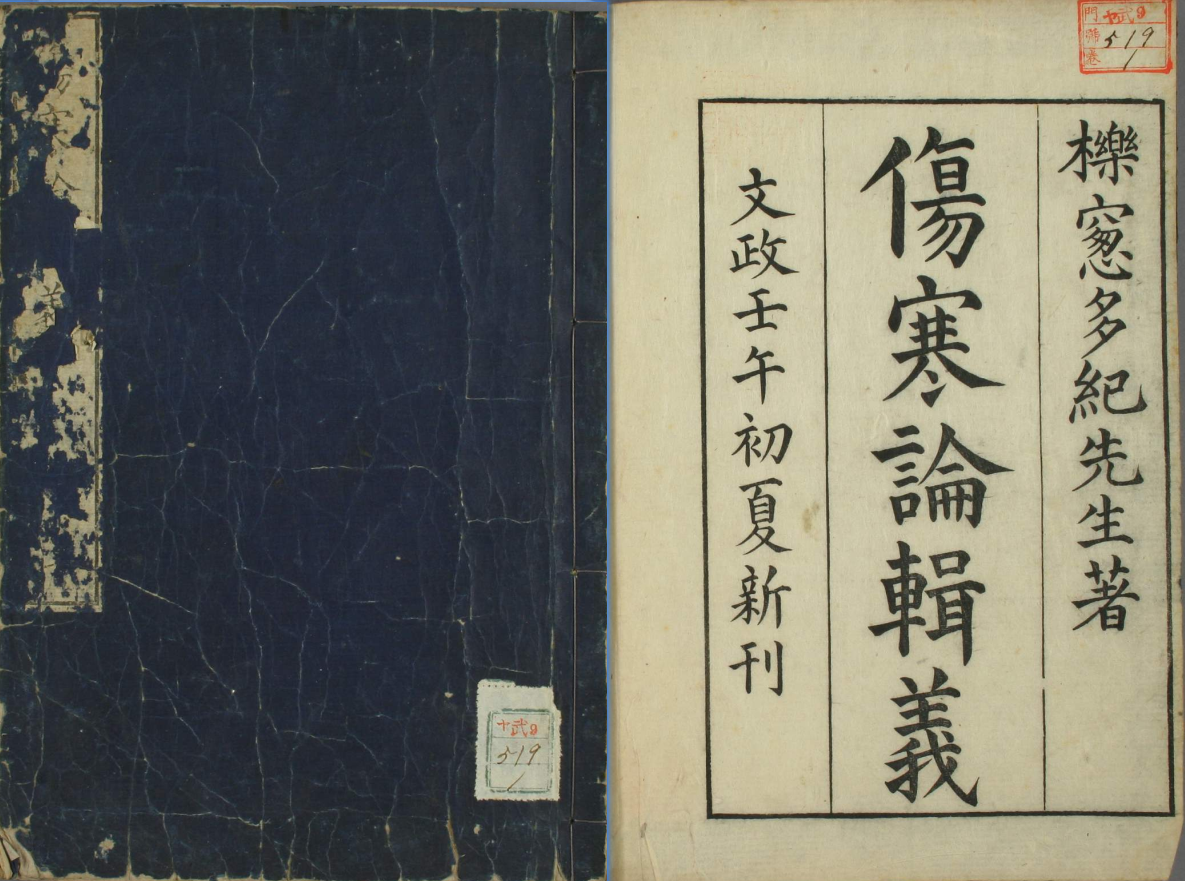 門 十武9
號 519
卷 1
櫟窻多紀先生著
傷寒論輯義
文政壬午初夏新刊
十武9
519
1